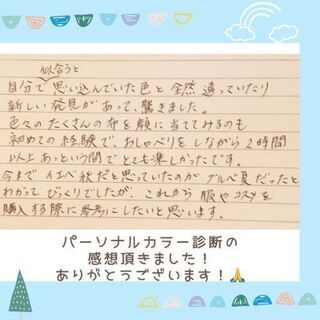 似合うと
自分で思い込んでいた色と全然違っていたり
新しい発見があって、驚きました。
色々のたくさんの布を顔に当ててみるのも
初めての経験で、おしゃべりをしながら2時間
以上あっという間でとても楽しかったです。
今までイエベ秋だと思っていたのがブルベ夏だったと
わかってびっくりでしたが、これから服やコスメを
購入する際に参考にしたいと思います。
パーソナルカラー診断の
感想頂きました！
ありがとうございます！🙏